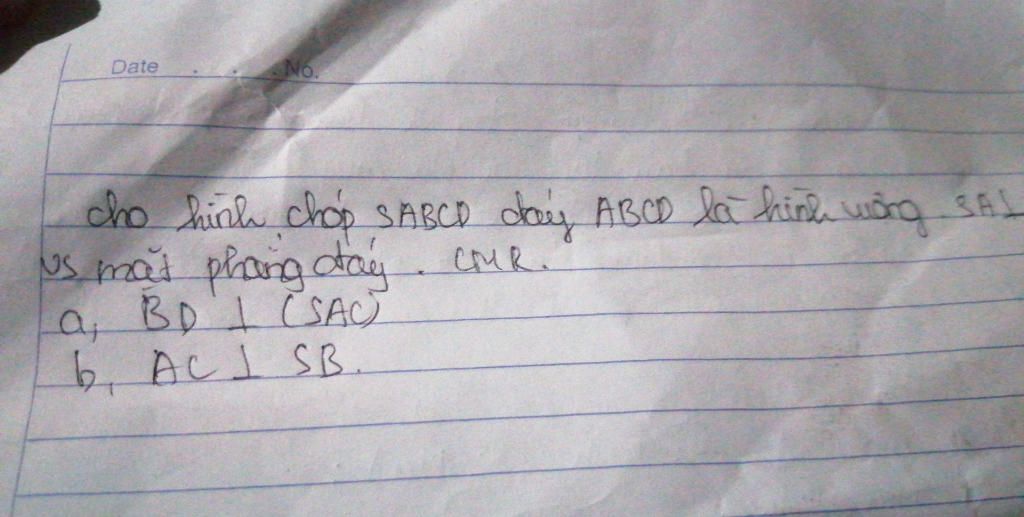 Date . . . No.
cho hình chóp SABCD đáy ABCD là hình vuông. SA⊥
vs mặt phẳng đáy. CMR.
a, BD ⊥ (SAC)
b, AC ⊥ SB.